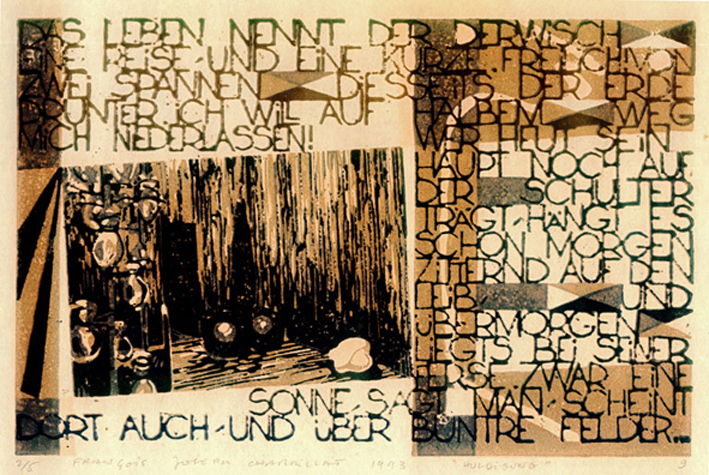 DAS LEBEN NENNT DER DERWISCH
EINE REISE UND EINE KURZE. FREILICH VON
ZWEI SPANNEN DIESSEITS DER ERDE
DRUNTER. ICH WILL AUF HALBEM WEG
MICH NIEDERLASSEN! WER HEUT SEIN
HAUPT NOCH AUF
DER SCHULTER
TRÄGT, HÄNGT ES
SCHON MORGEN
ZITTERND AUF DEN
LEIB UND
ÜBERMORGEN
LIEGTS BEI SEINER
FERSE. ZWAR EINE
SONNE, SAGT MAN, SCHEINT
DORT AUCH UND ÜBER BUNTRE FELDER...
2/5 FRANÇOIS JOSEPH 1993 "HULDIGUNG"